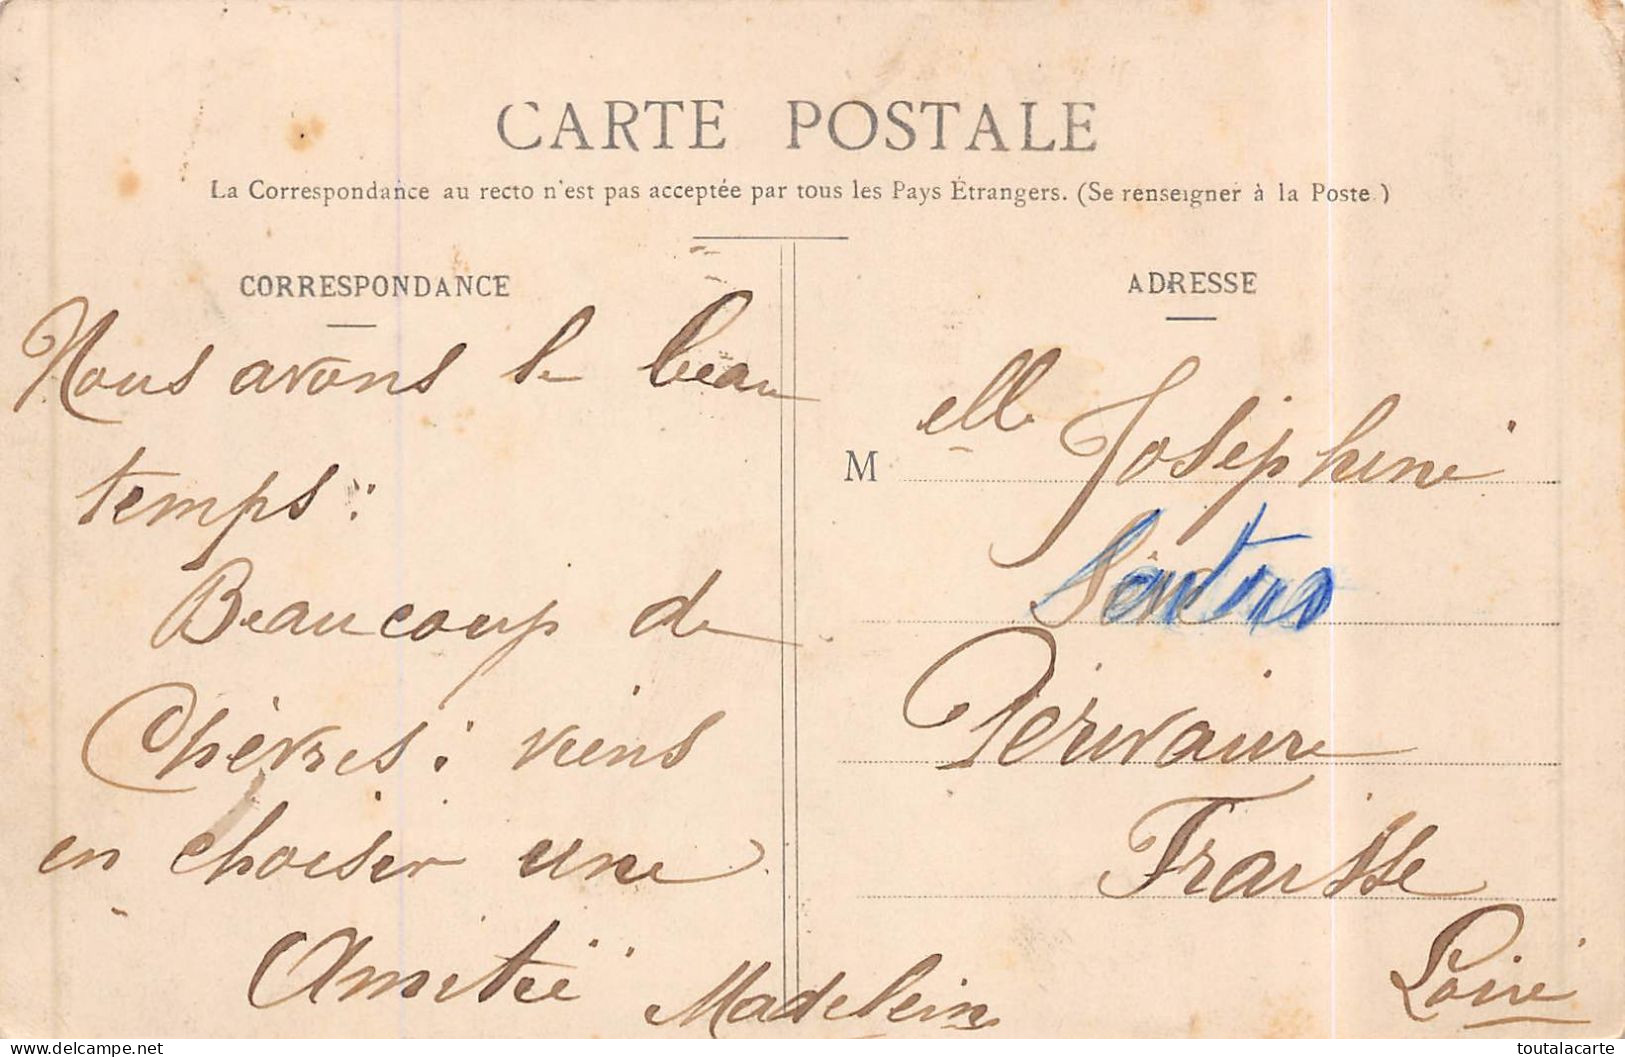 CARTE POSTALE
La Correspondance au recto n'est pas acceptée par tous les Pays Étrangers. (Se renseigner à la Poste.)
CORRESPONDANCE
Nous avons le beau
temps:
Beaucoup de
Chèvres: viens
en choisir une
Amitié Madelein
ADRESSE
Melle Joséphine
Fraisse
Loire
www.delcampe.net
toutalacarte